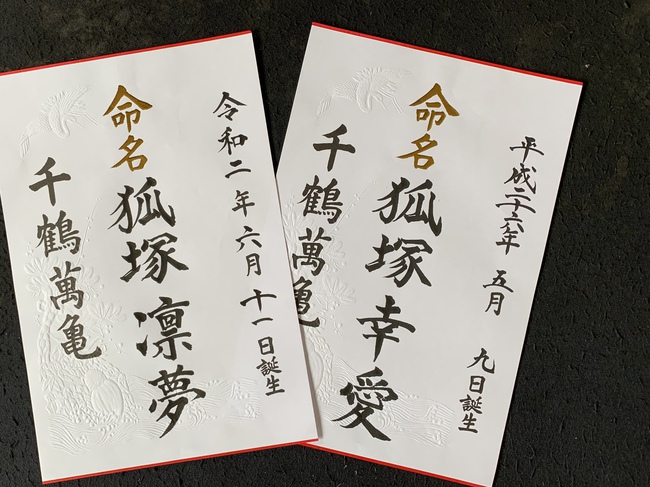 平成二十六年 五月 九日誕生
命名
狐塚幸愛
千鶴萬亀
令和二年 六月 十一日誕生
命名
狐塚凛夢
千鶴萬亀